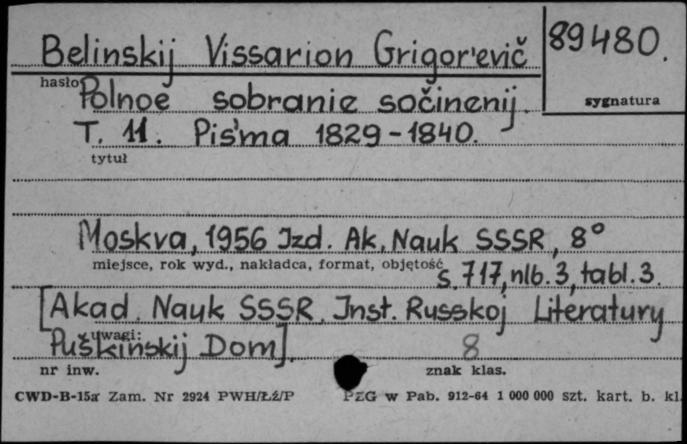 Belinskij Vissarion Grigor'evič
89480.
hasło
sygnatura
Polnoe sobranie sočinenij.
T. 11. Pis'ma 1829-1840.
tytuł
Moskva, 1956 Izd. Ak. Nauk SSSR, 8°
miejsce, rok wyd., nakładca, format, objętość
s. 717, nlb. 3, tabl. 3.
[Akad. Nauk SSSR. Inst. Russkoj Literatury
uwagi:
Puškinskij Dom].
8
nr inw.
znak klas.
CWD-B-15a Zam. Nr 2924 PWH/Łź/P
PZG w Pab. 912-64 1 000 000 szt. kart. b. kl.